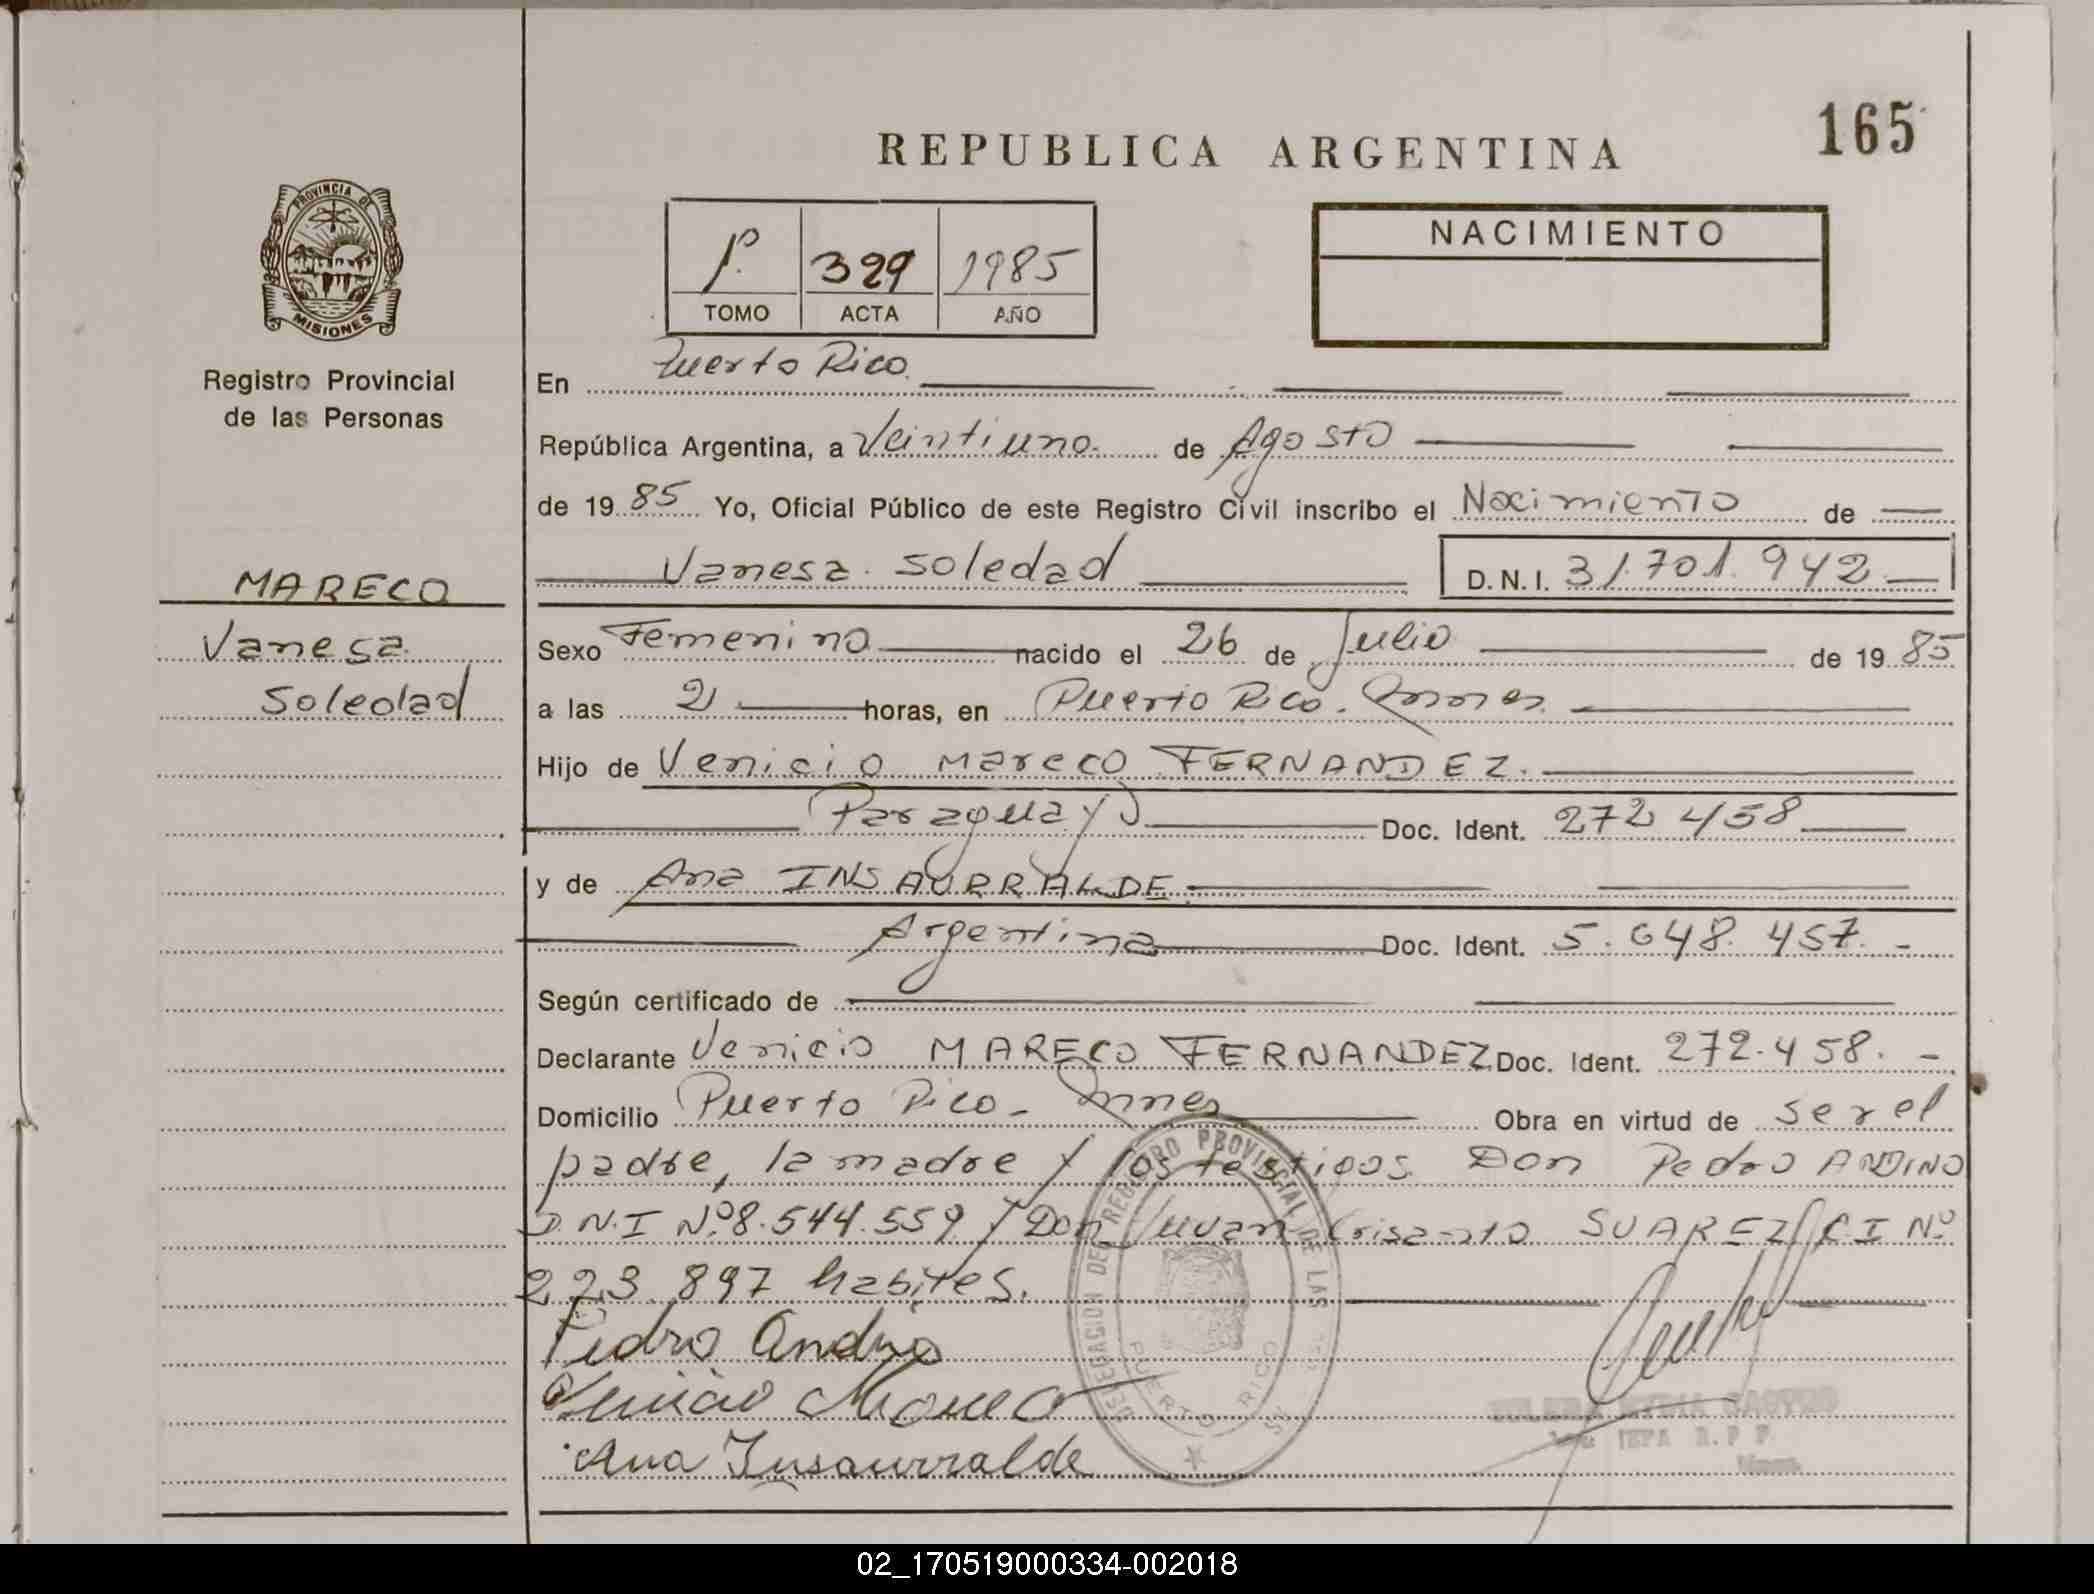 165
REPUBLICA ARGENTINA
PROVINCIA DE
MISIONES
Registro Provincial
de las Personas
1º. 329 1985
TOMO ACTA AÑO
NACIMIENTO
En Puerto Rico.
República Argentina, a Veintiuno. de Agosto
de 19 85 Yo, Oficial Público de este Registro Civil inscribo el Nacimiento de
Vanesa Soledad D.N.I. 31.701.942
MARECO
Vanesa
Soledad
Sexo Femenino nacido el 26 de Julio de 19 85
a las 21 horas, en Puerto Rico. Mnes.
Hijo de Venicio Mareco FERNANDEZ.
Paraguay Doc. Ident. 272 458
y de Ana INSAURRALDE
Argentina Doc. Ident. 5.648.457.-
Según certificado de
Declarante Venicio MARECO FERNANDEZ Doc. Ident. 272.458.-
Domicilio Puerto Rico - Mnes Obra en virtud de ser el
padre, la madre y los testigos Don Pedro ANDINO
D.N.I Nº 8.544.559 y Don Juvan Crisanto SUAREZ C I Nº
223.897 habites.
Pedro Andino
Venicio Mareco
Ana Insaurralde
DELEGACION DEL REGISTRO PROVINCIAL DE LAS
PUERTO RICO
CASTRO
JEFA R.P.P.
02_170519000334-002018